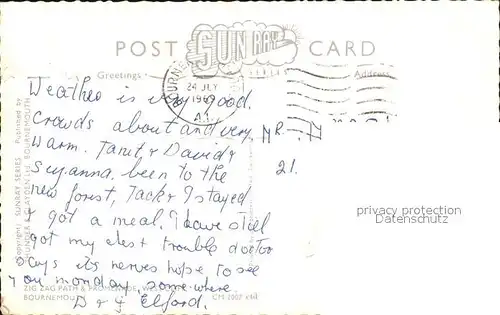 POST CARD
SUN RAY
SERIES
Greetings
Address
BOURNEM
24 JLY
196
A.1
Weather is very good.
crowds about and very
warm. Janet, & David &
Suzanna, been to the
new forest, Jack & I stayed
& got a meal. I have still
got my chest trouble doctor
says its nerves hope to see
you monday, some where
D & J Elford.
MR.
21.
Copyright SUNRAY SERIES Published by
BOURNEMOUTH
ZIG ZAG PATH & PROMENADE, WEST
BOURNEMOUTH
CM 1007
privacy protection
Datenschutz